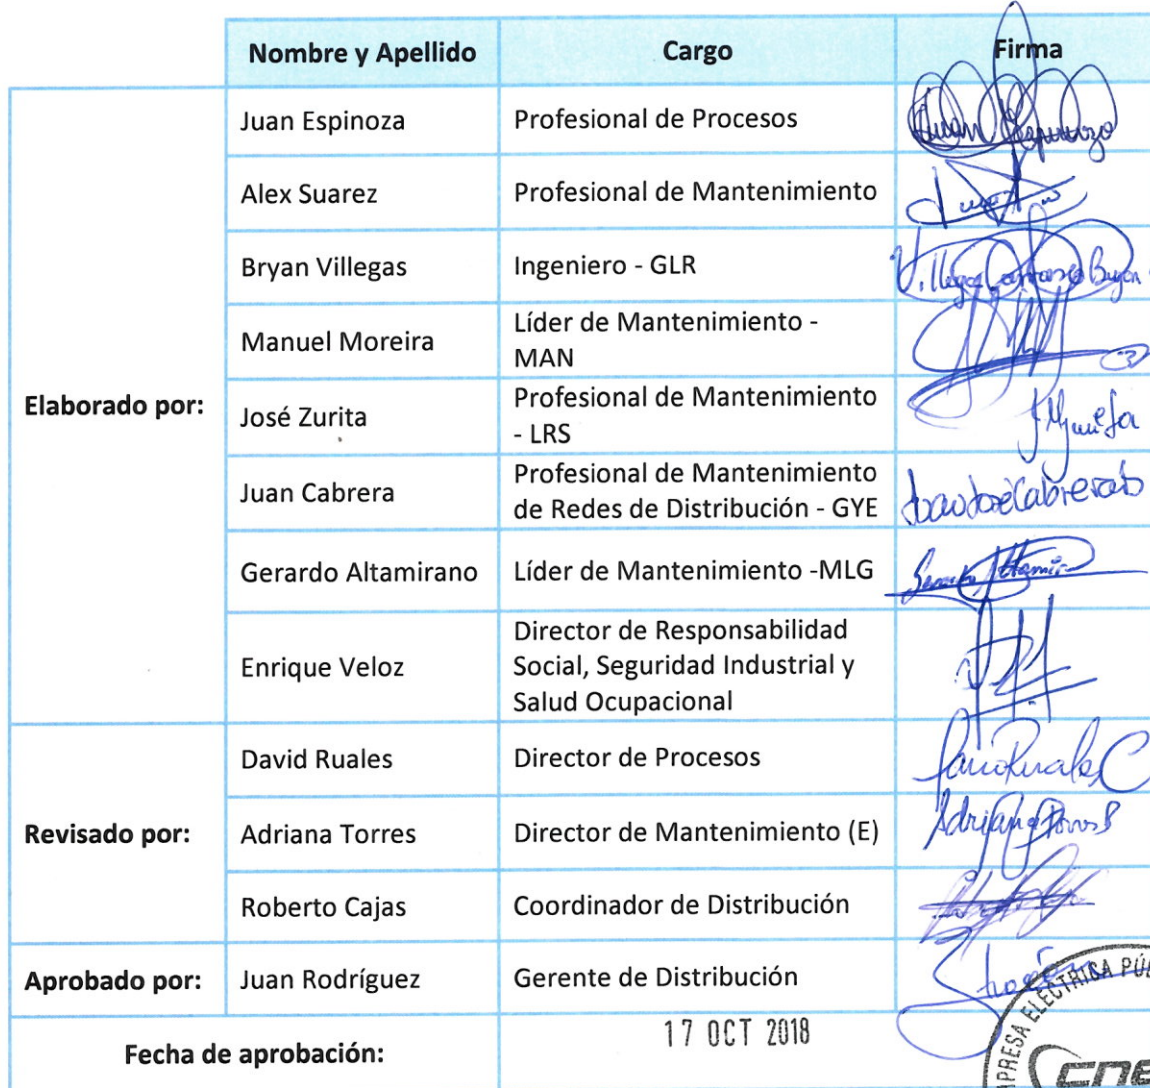 Nombre y Apellido Cargo Firma
Elaborado por:
Juan Espinoza Profesional de Procesos Juan Espinoza
Alex Suarez Profesional de Mantenimiento
Bryan Villegas Ingeniero - GLR Villegas Bryan
Manuel Moreira Líder de Mantenimiento -
MAN
José Zurita Profesional de Mantenimiento
- LRS
Juan Cabrera Profesional de Mantenimiento
de Redes de Distribución - GYE
Gerardo Altamirano Líder de Mantenimiento -MLG
Enrique Veloz Director de Responsabilidad
Social, Seguridad Industrial y
Salud Ocupacional
Revisado por:
David Ruales Director de Procesos
Adriana Torres Director de Mantenimiento (E) Adriana Torres
Roberto Cajas Coordinador de Distribución
Aprobado por: Juan Rodríguez Gerente de Distribución
Fecha de aprobación: 17 OCT 2018